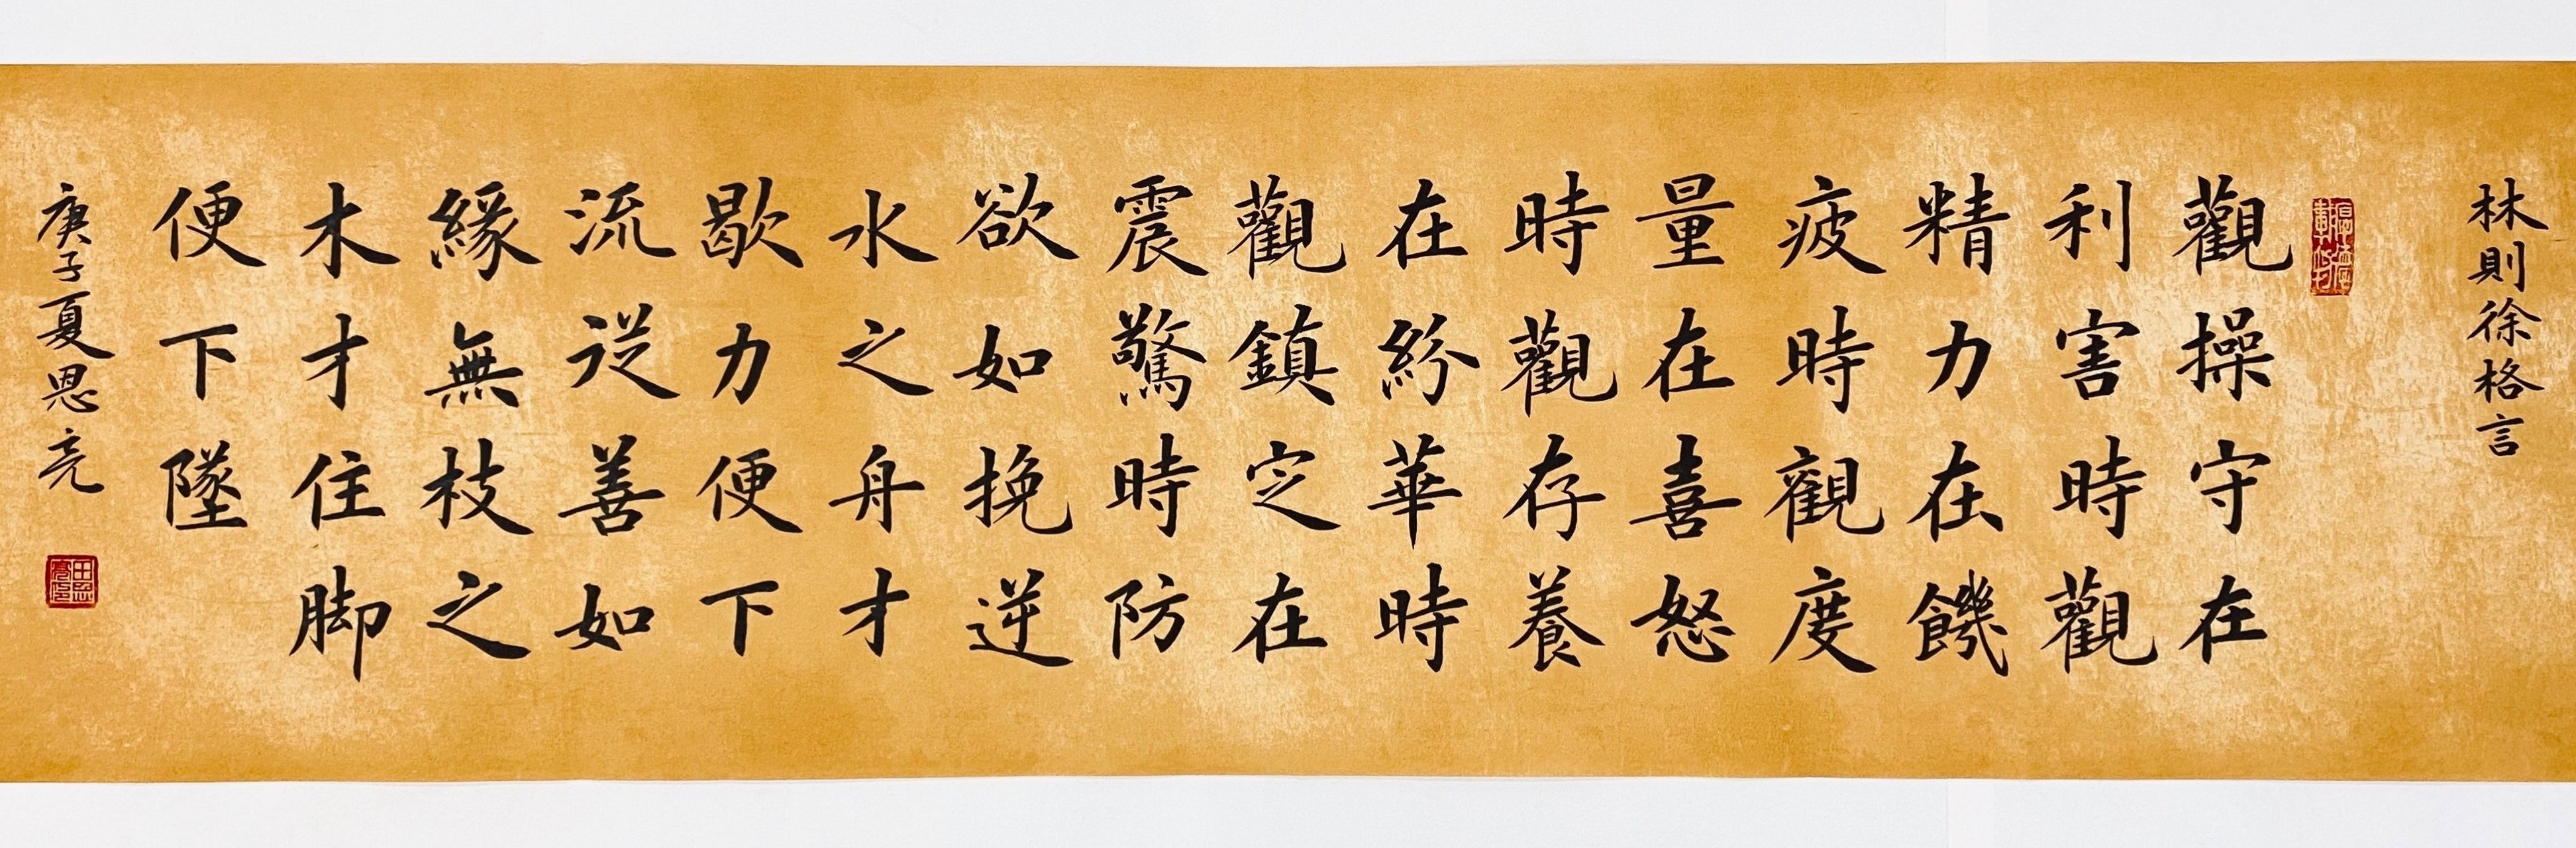 林則徐格言
觀操守在
利害時觀
精力在饑
疲時觀度
量在喜怒
時觀存養
在紛華時
觀鎮定在
震驚時防
欲如挽逆
水之舟才
歇力便下
流從善如
緣無枝之
木才住脚
便下墜
庚子夏恩亮
厚德載物